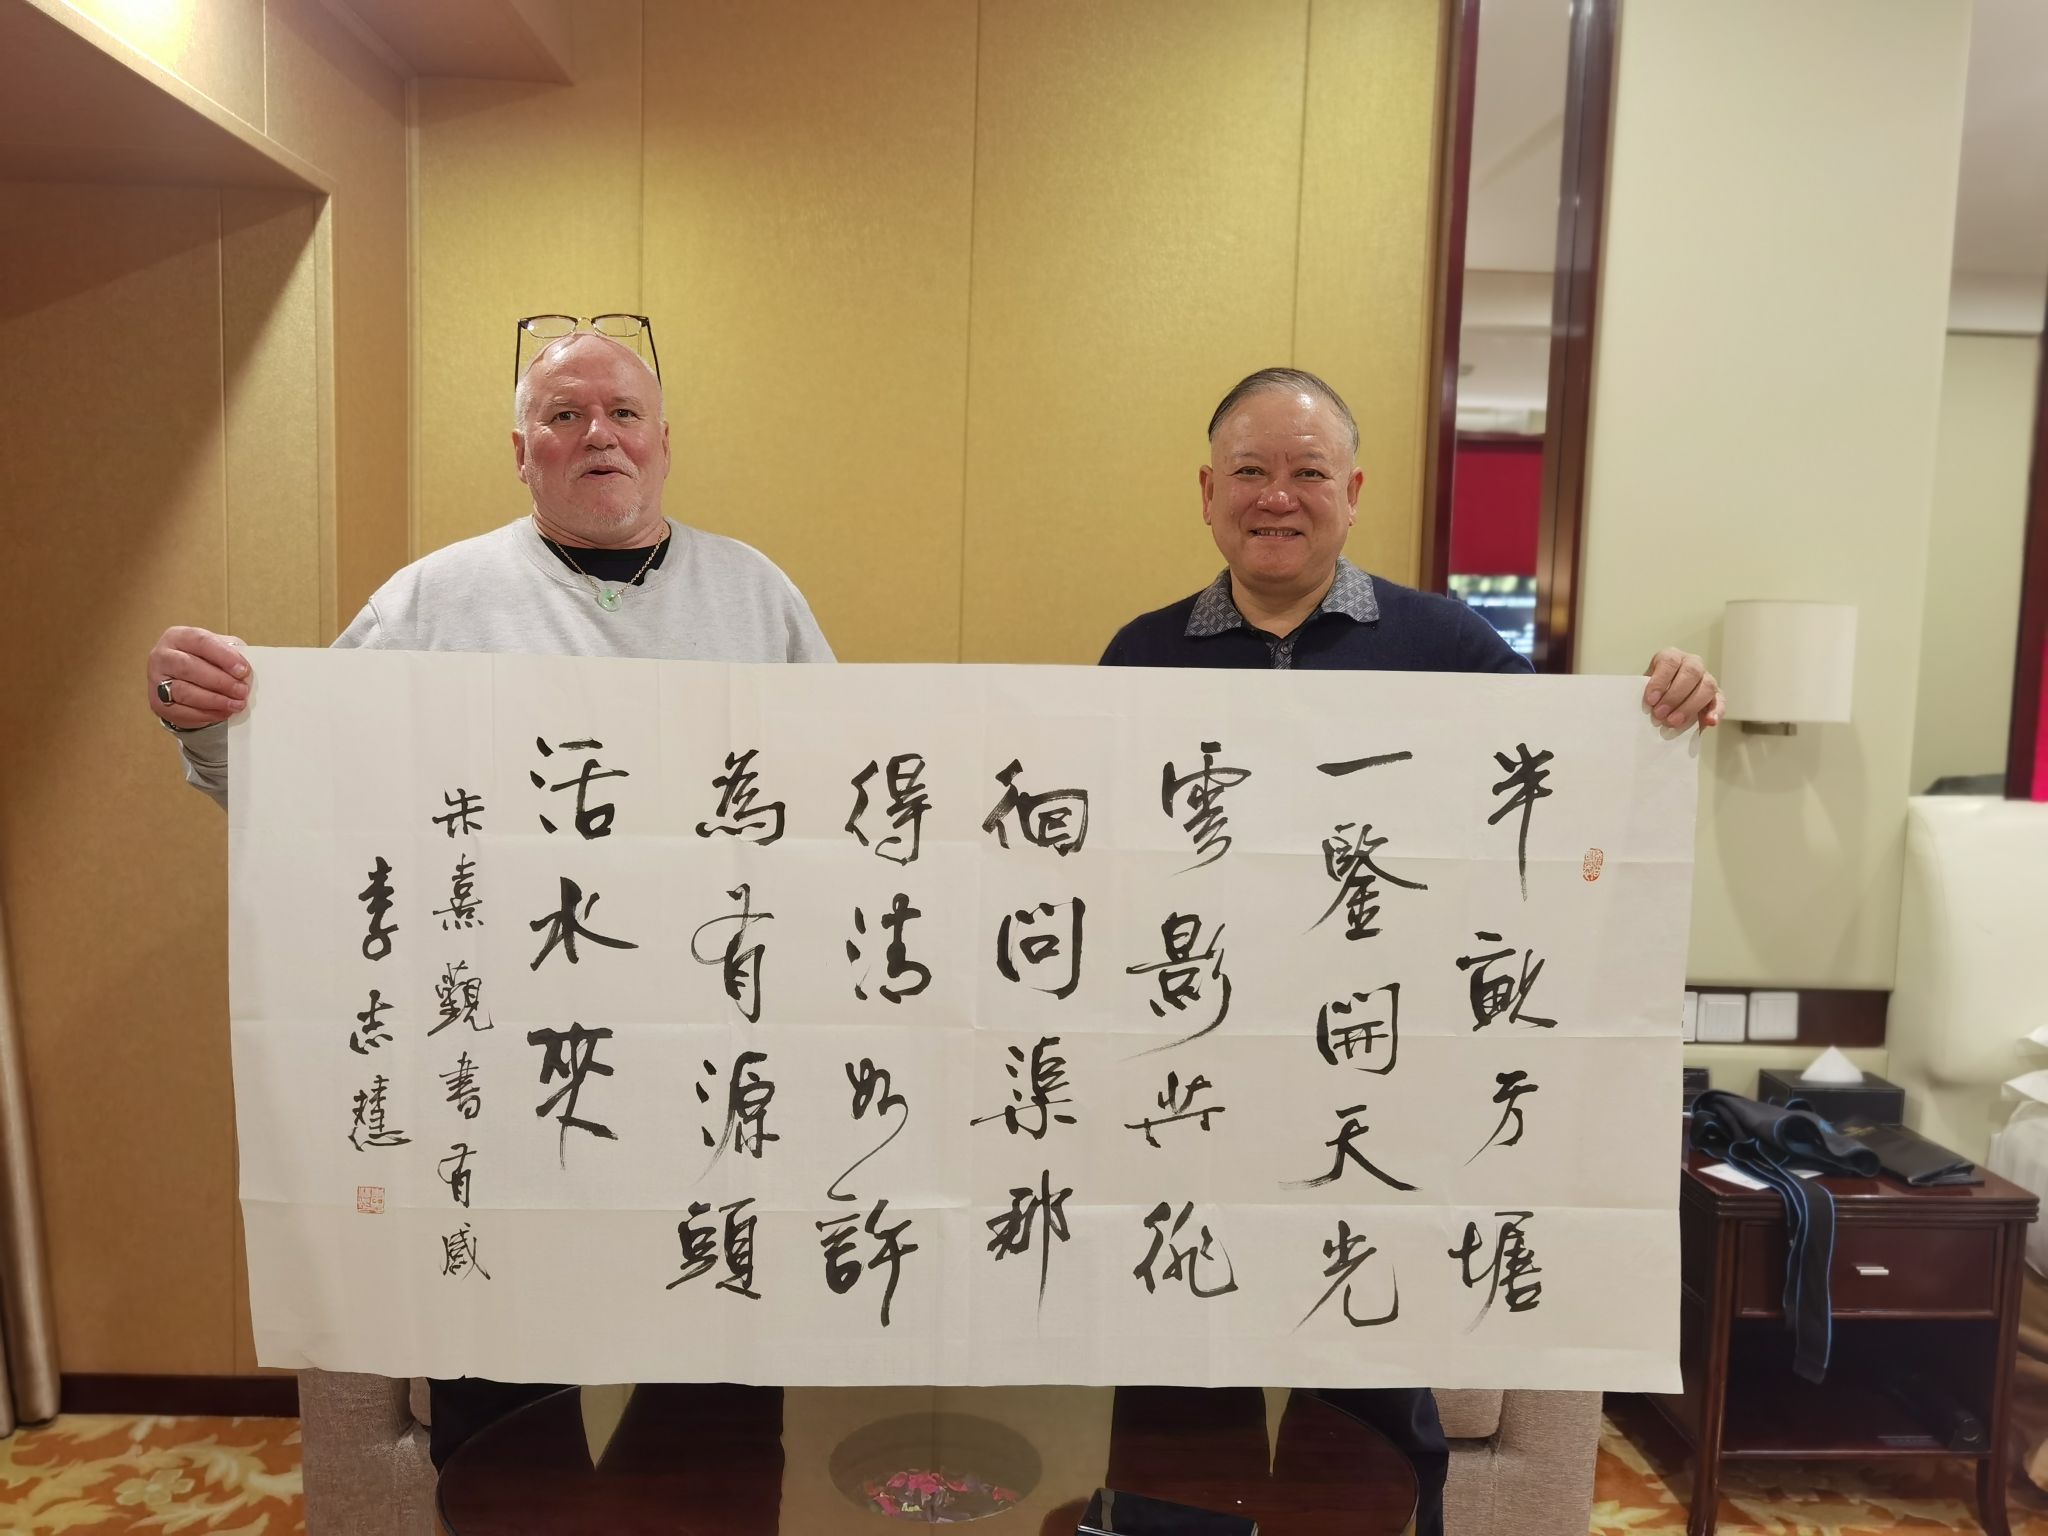 半畝方塘
一鑒開天光
雲影共徘
徊問渠那
得清如許
為有源頭
活水來
朱熹觀書有感
李志慧